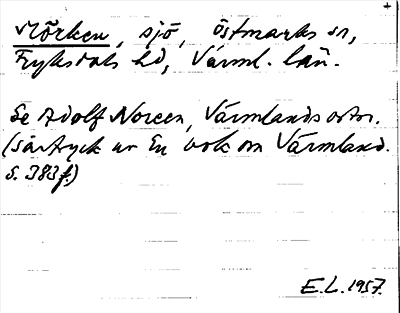 Mörken, sjö, Östmarks sn,
Fryksdals hd, Värml. län.
Se Adolf Noreen, Värmlands ortn.
(särtryck ur En bok om Värmland.
s. 383 f.)
E.L. 1957.